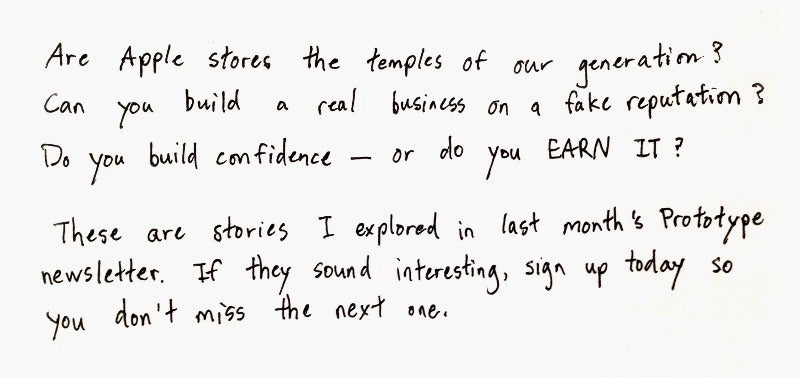 Are Apple stores the temples of our generation?
Can you build a real business on a fake reputation?
Do you build confidence — or do you EARN IT?
These are stories I explored in last month's Prototype
newsletter. If they sound interesting, sign up today so
you don't miss the next one.